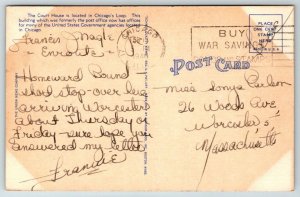 The Court House is located in Chicago's Loop. This
building which was formerly the post office now has offices
for many of the United States Government agencies located
in Chicago.
CHICAGO
BUY
WAR SAVINGS
PLACE
ONE CENT
STAMP
HERE
POST CARD
Francis
Enroute
Homeward Bound
short stop-over
arriving Worcester
about Thursday or
Friday - sure hope you
answered my letter
Frannie
Miss Sonya Carlson
26 Woods Ave
Worcester 5
Massachusetts